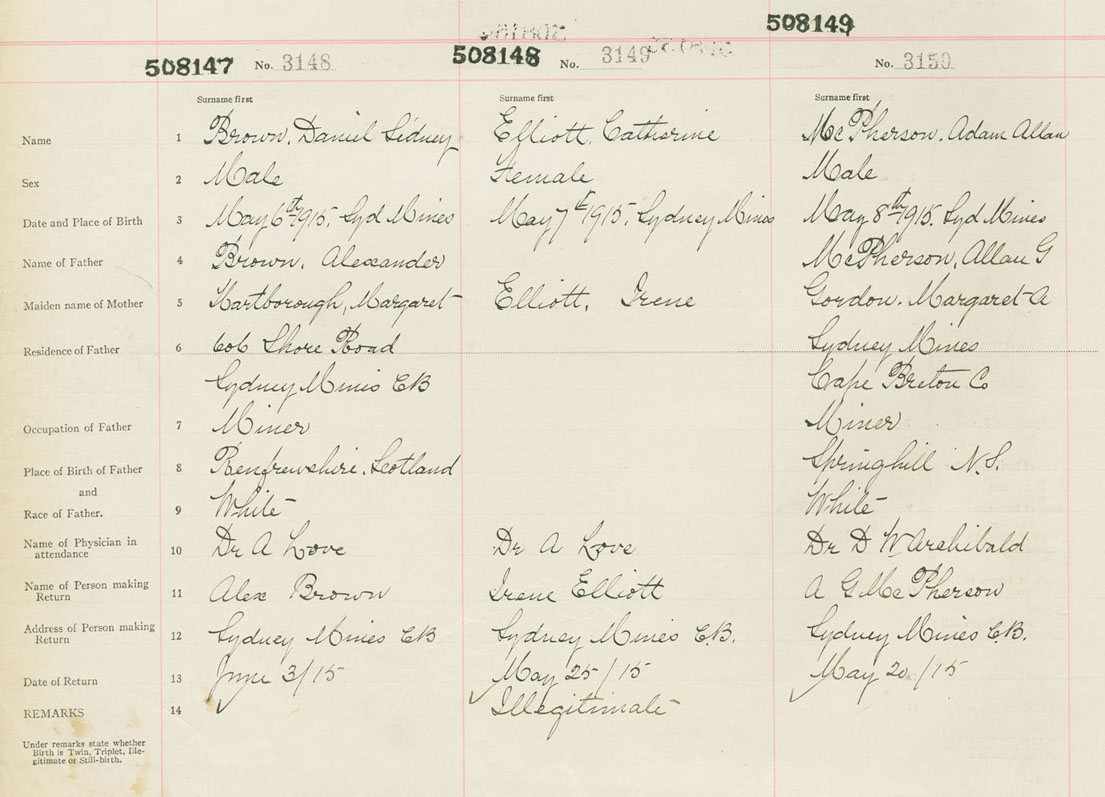 508149
508147 No. 3148 508148 No. 3149 No. 3150
Surname first Surname first Surname first
Name 1 Brown, Daniel Sidney Elliott, Catherine McPherson, Adam Allan
Sex 2 Male Female Male
Date and Place of Birth 3 May 6th 1915. Syd Mines May 7th 1915. Sydney Mines May 8th 1915. Syd Mines
Name of Father 4 Brown, Alexander McPherson, Allan G
Maiden name of Mother 5 Hartborough, Margaret Elliott, Irene Gordon. Margaret A
Residence of Father 6 606 Shore Road Sydney Mines
Sydney Mines CB Cape Breton Co
Occupation of Father 7 Miner Miner
Place of Birth of Father 8 Renfrewshire. Scotland Springhill N.S.
and
Race of Father. 9 White White
Name of Physician in attendance 10 Dr A Love Dr A Love Dr D W Archibald
Name of Person making Return 11 Alex Brown Irene Elliott A G McPherson
Address of Person making Return 12 Sydney Mines CB Sydney Mines C.B. Sydney Mines C.B.
Date of Return 13 June 3/15 May 25/15 May 20/15
REMARKS 14 Illegitimate
Under remarks state whether
Birth is Twin, Triplet, Ille-
gitimate or Still-birth.